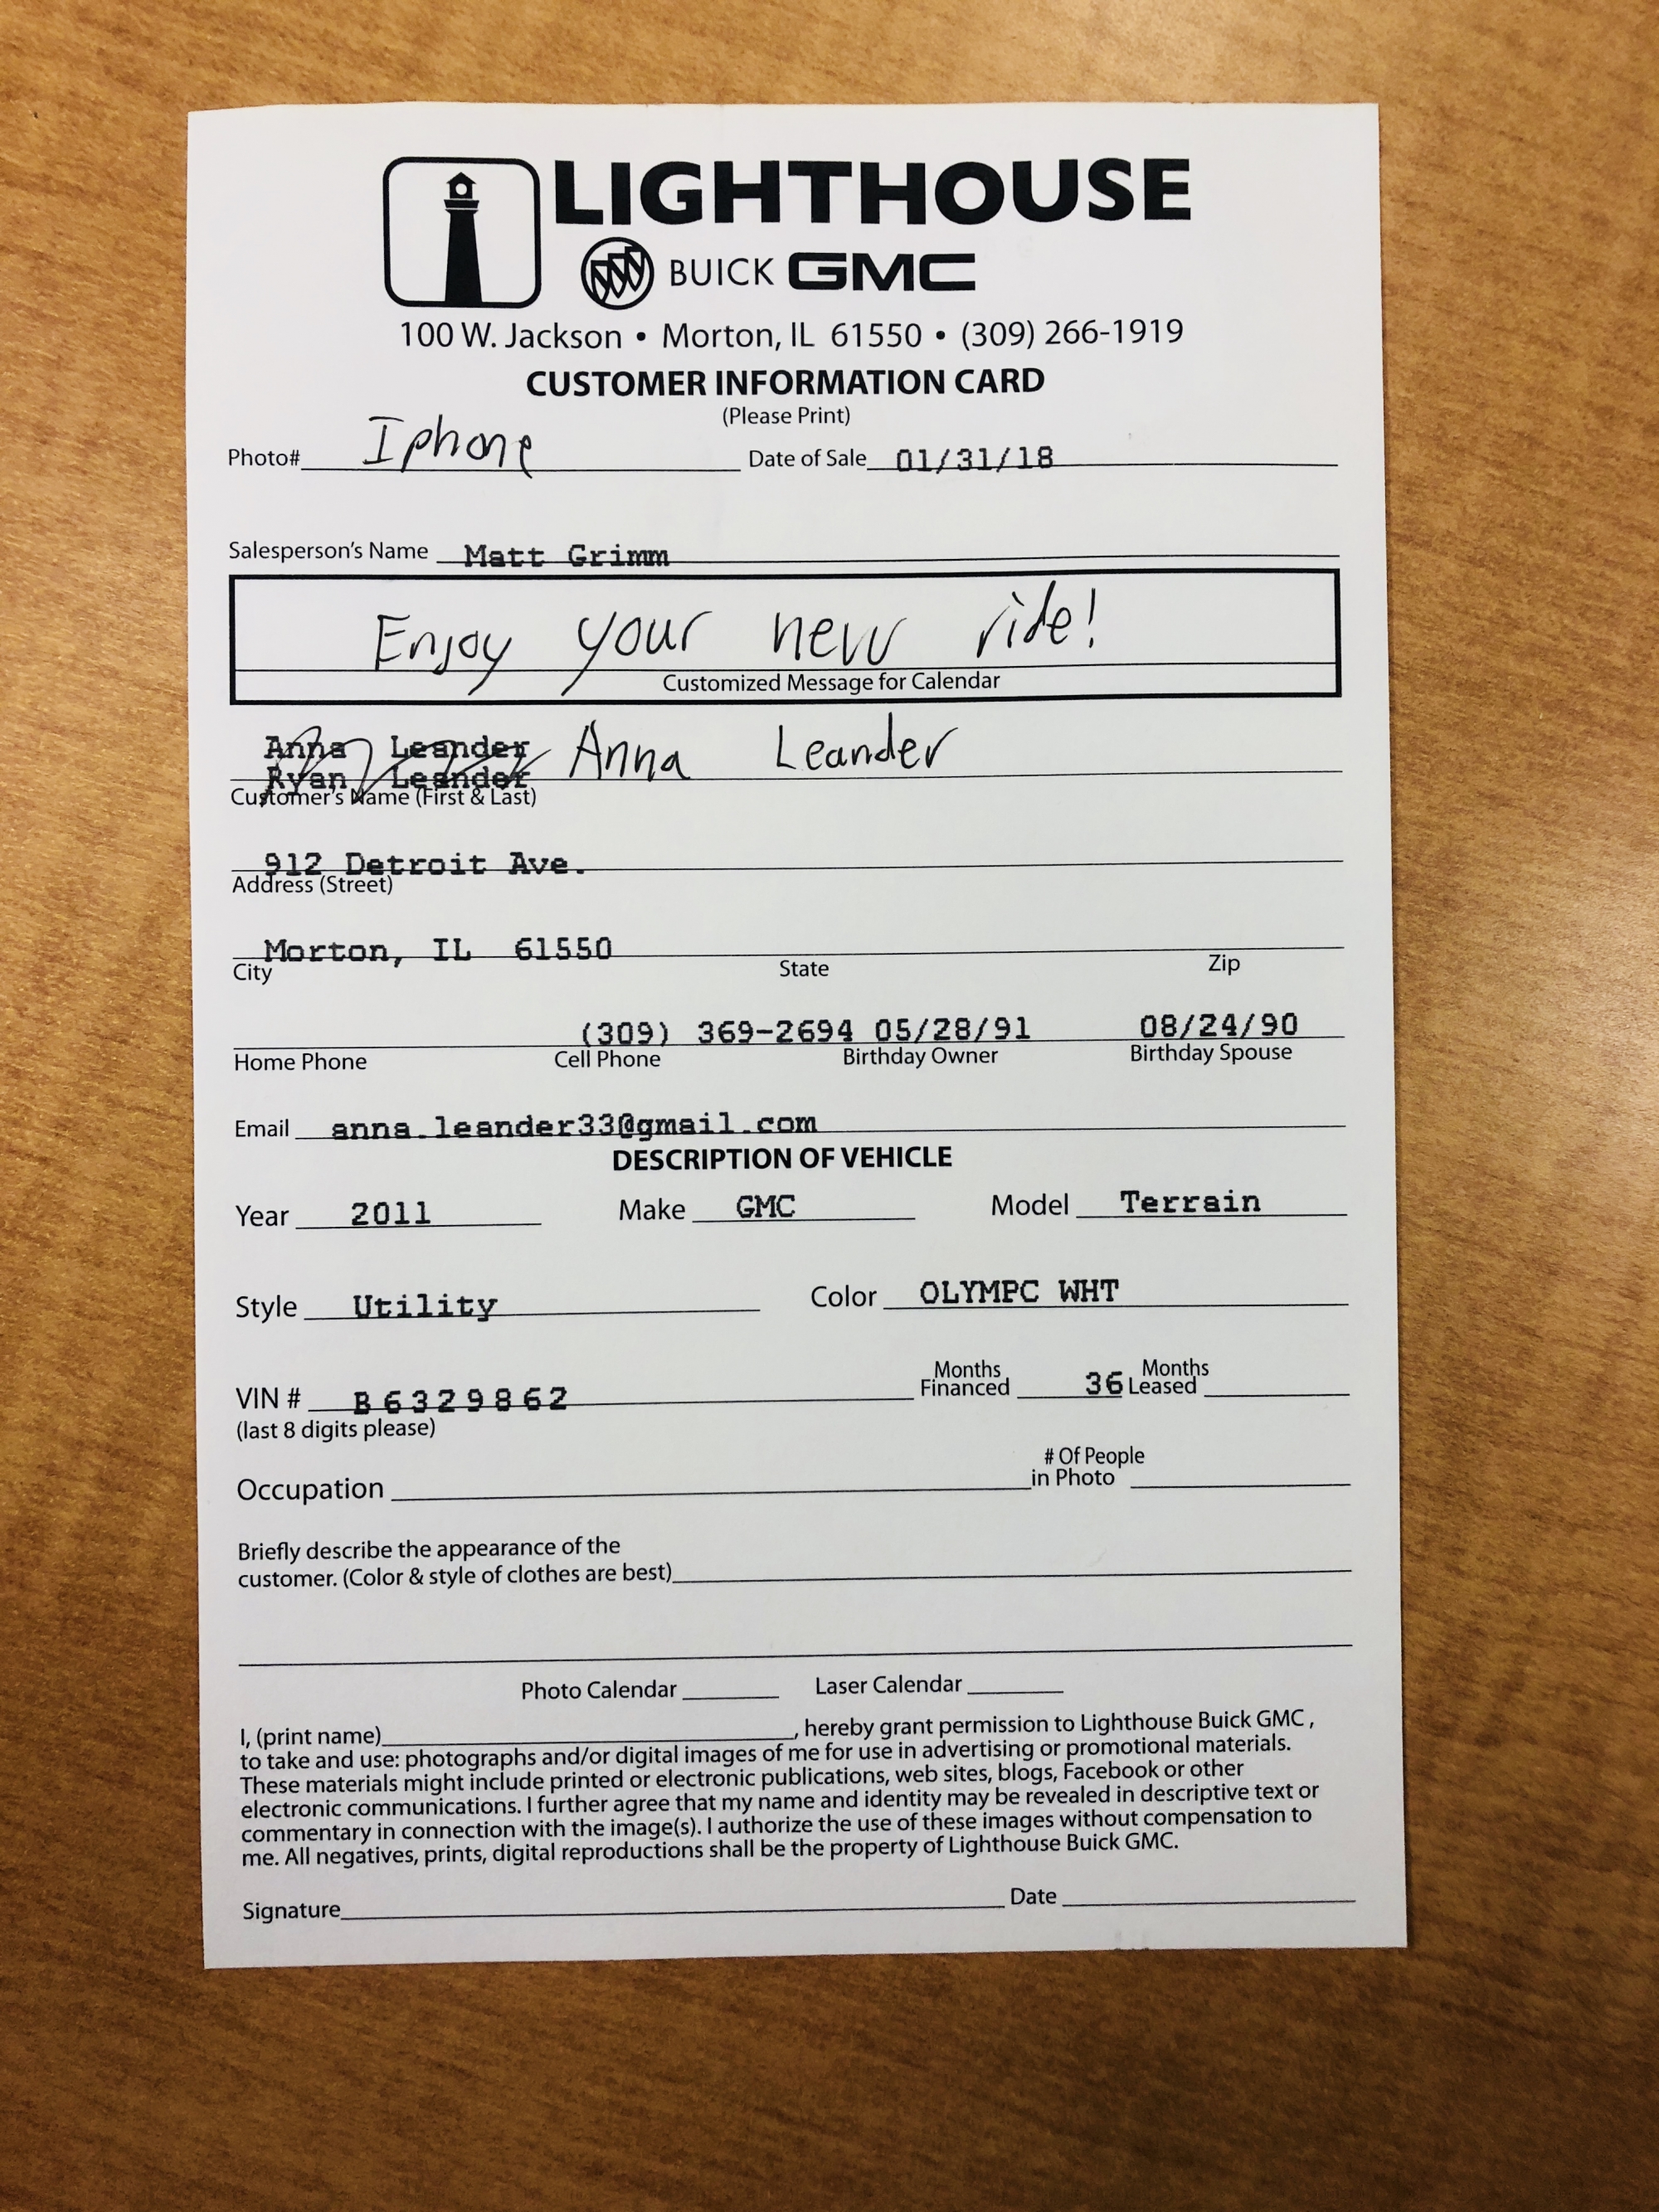 LIGHTHOUSE
BUICK GMC
100 W. Jackson • Morton, IL 61550 • (309) 266-1919
CUSTOMER INFORMATION CARD
(Please Print)
Photo# Iphone Date of Sale 01/31/18
Salesperson's Name Matt Grimm
Enjoy your new ride!
Customized Message for Calendar
Anna Leander Anna Leander
Ryan Leander
Customer's Name (First & Last)
912 Detroit Ave.
Address (Street)
Morton, IL 61550
City State Zip
(309) 369-2694 05/28/91 08/24/90
Home Phone Cell Phone Birthday Owner Birthday Spouse
Email anna.leander33@gmail.com
DESCRIPTION OF VEHICLE
Year 2011 Make GMC Model Terrain
Style Utility Color OLYMPC WHT
VIN # B6329862 Months Financed 36 Months Leased
(last 8 digits please)
Occupation # Of People in Photo
Briefly describe the appearance of the
customer. (Color & style of clothes are best)
Photo Calendar Laser Calendar
I, (print name) , hereby grant permission to Lighthouse Buick GMC ,
to take and use: photographs and/or digital images of me for use in advertising or promotional materials.
These materials might include printed or electronic publications, web sites, blogs, Facebook or other
electronic communications. I further agree that my name and identity may be revealed in descriptive text or
commentary in connection with the image(s). I authorize the use of these images without compensation to
me. All negatives, prints, digital reproductions shall be the property of Lighthouse Buick GMC.
Signature Date